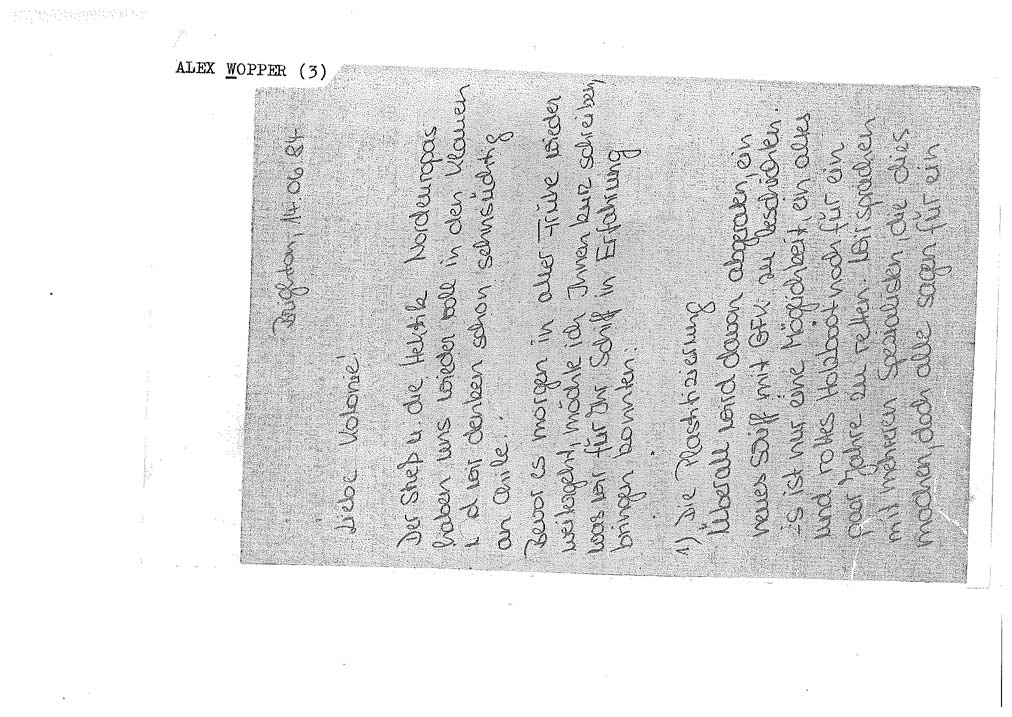 ALEX WOPPER (3)
Brighton, 14.06.84
Liebe Kolonie!
Der Streß u. die Hektik Nordeuropas
haben uns wieder voll in den Klauen
u. d wir denken schon sehnsüchtig
an Chile.
Bevor es morgen in aller Frühe wieder
weitergeht, möchte ich Ihnen kurz schreiben,
was wir für Ihr Schiff in Erfahrung
bringen konnten:
1) Die Plastifizierung
Überall wird davon abgeraten, ein
neues Schiff mit GFK zu beschichten.
Es ist nur eine Möglichkeit, ein altes
und rottes Holzboot noch für ein
paar Jahre zu retten. Wir sprachen
mit mehreren Spezialisten, die dies
machen, doch alle sagen für ein